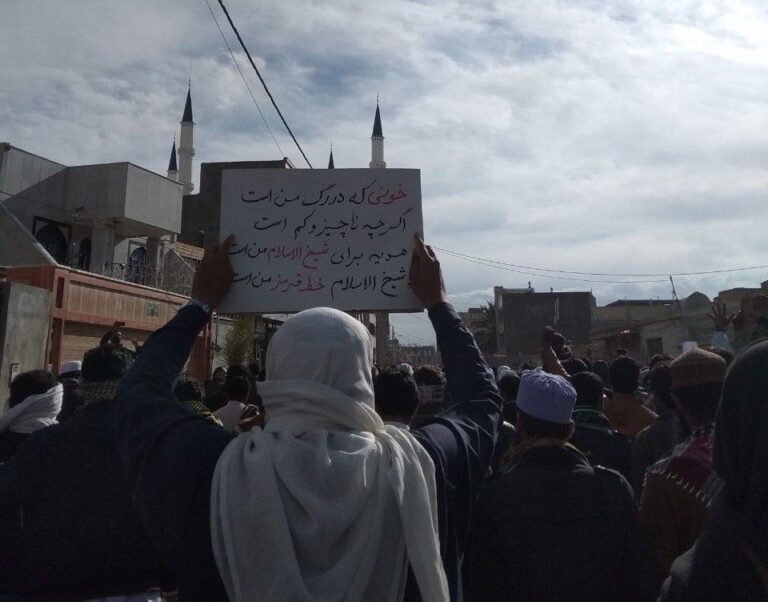 خونی که در رگ من است
اگرچه ناچیز و کم است
هدیه برای شیخ الاسلام من است
شیخ الاسلام خط قرمز من است